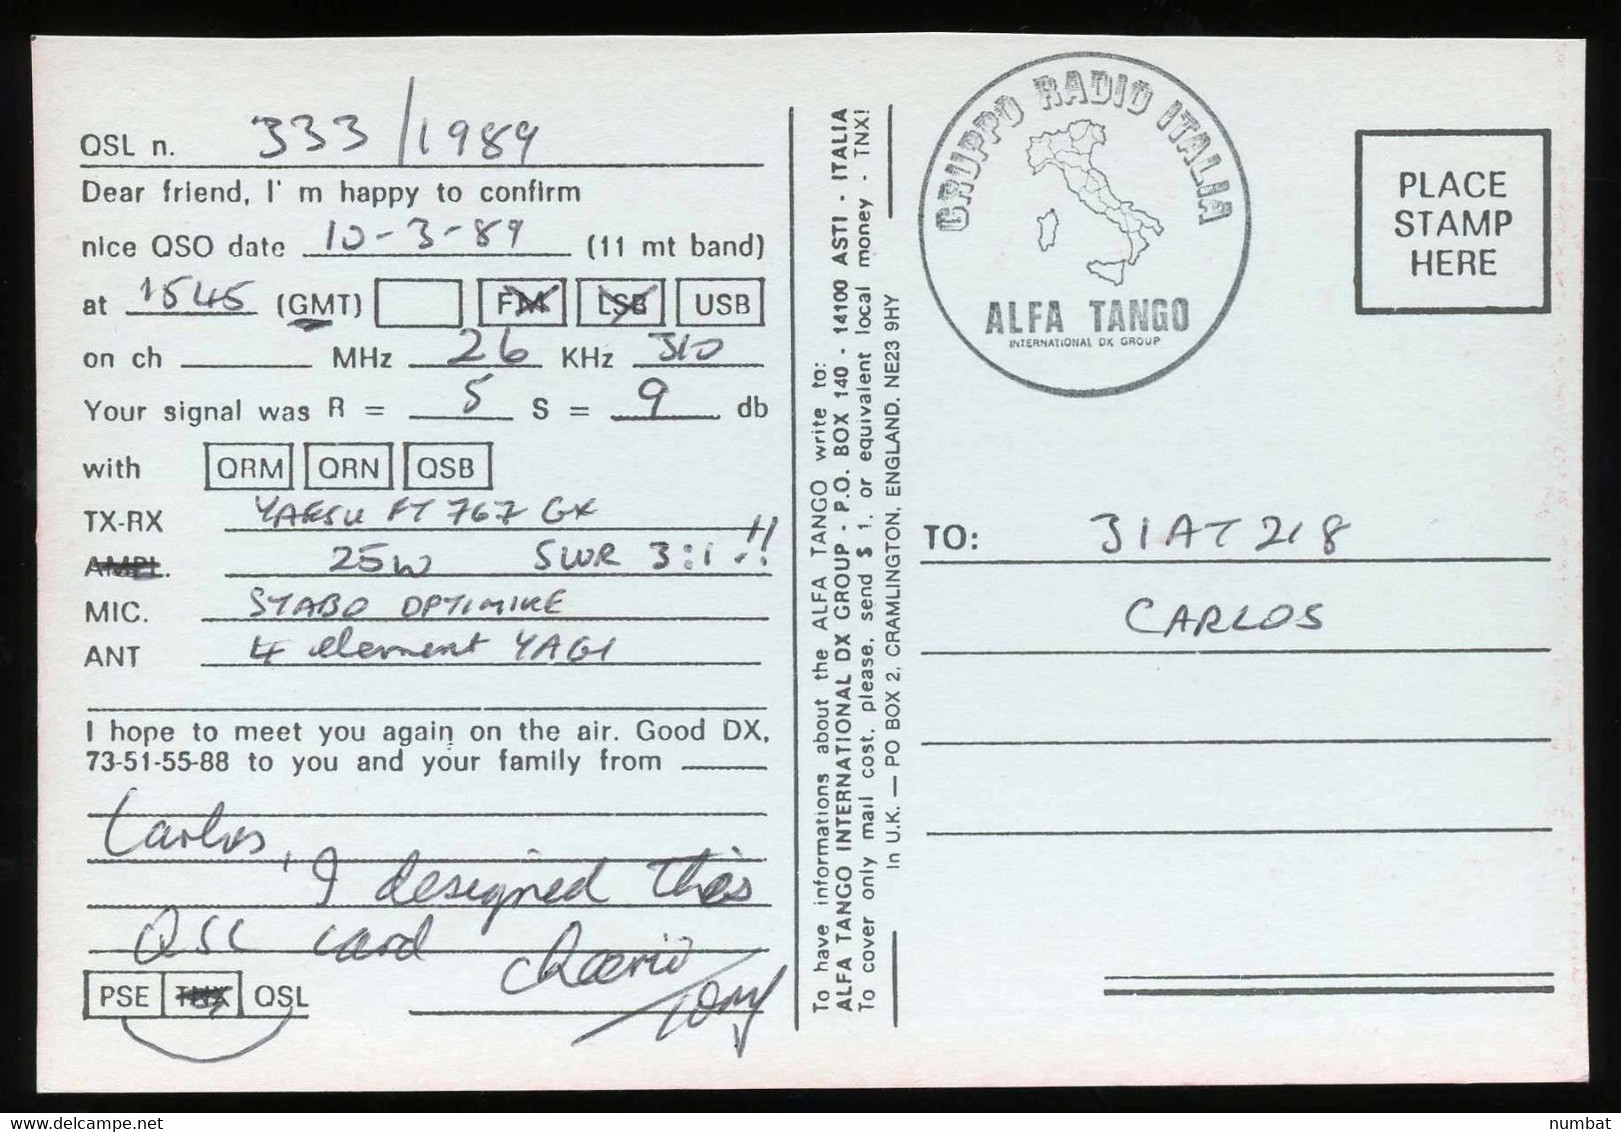 QSL n. 333/1989
Dear friend, I' m happy to confirm
nice QSO date 10-3-89 (11 mt band)
at 1545 (GMT) FM LSB USB
on ch MHz 26 KHz 310
Your signal was R = 5 S = 9 db
with QRM QRN QSB
TX-RX YAESU FT 767 GX
AMPL. 25W SWR 3:1 !!
MIC. STABO OPTIMIKE
ANT 4 element YAGI
I hope to meet you again on the air. Good DX,
73-51-55-88 to you and your family from
Carlos,
I designed this
QSL card Cheerio
Tony
PSE TNX QSL
To have informations about the ALFA TANGO write to:
ALFA TANGO INTERNATIONAL DX GROUP - P.O. BOX 140 - 14100 ASTI - ITALIA
To cover only mail cost, please, send $ 1, or equivalent local money - TNX!
In U.K. — PO BOX 2, CRAMLINGTON, ENGLAND. NE23 9HY
GRUPPO RADIO ITALIA
ALFA TANGO
INTERNATIONAL DX GROUP
PLACE
STAMP
HERE
TO: 31AT218
CARLOS
delcampe.net
numbat